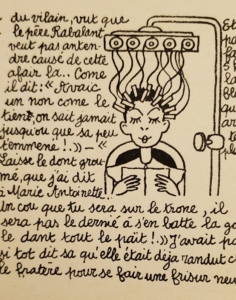 du vilain, vut que
le père Rabalant
veut pas anten-
dre causé de cette
afair la.. Come
il dit: « Avaic
un non come le
tien, on sait jamait
jusqu'ou que sa peu
temmené !.. » — «
Laisse le dont grou-
mé, que j'ai dit
à Marie Antoinette !
Un cou que tu sera sur le trone, il
sera pas le dernié à s'en batte la go
le dant tout le pait ! » J'avait pa
si tot dit sa qu'elle était déja randut c
le fratère pour se fair une frisur neu